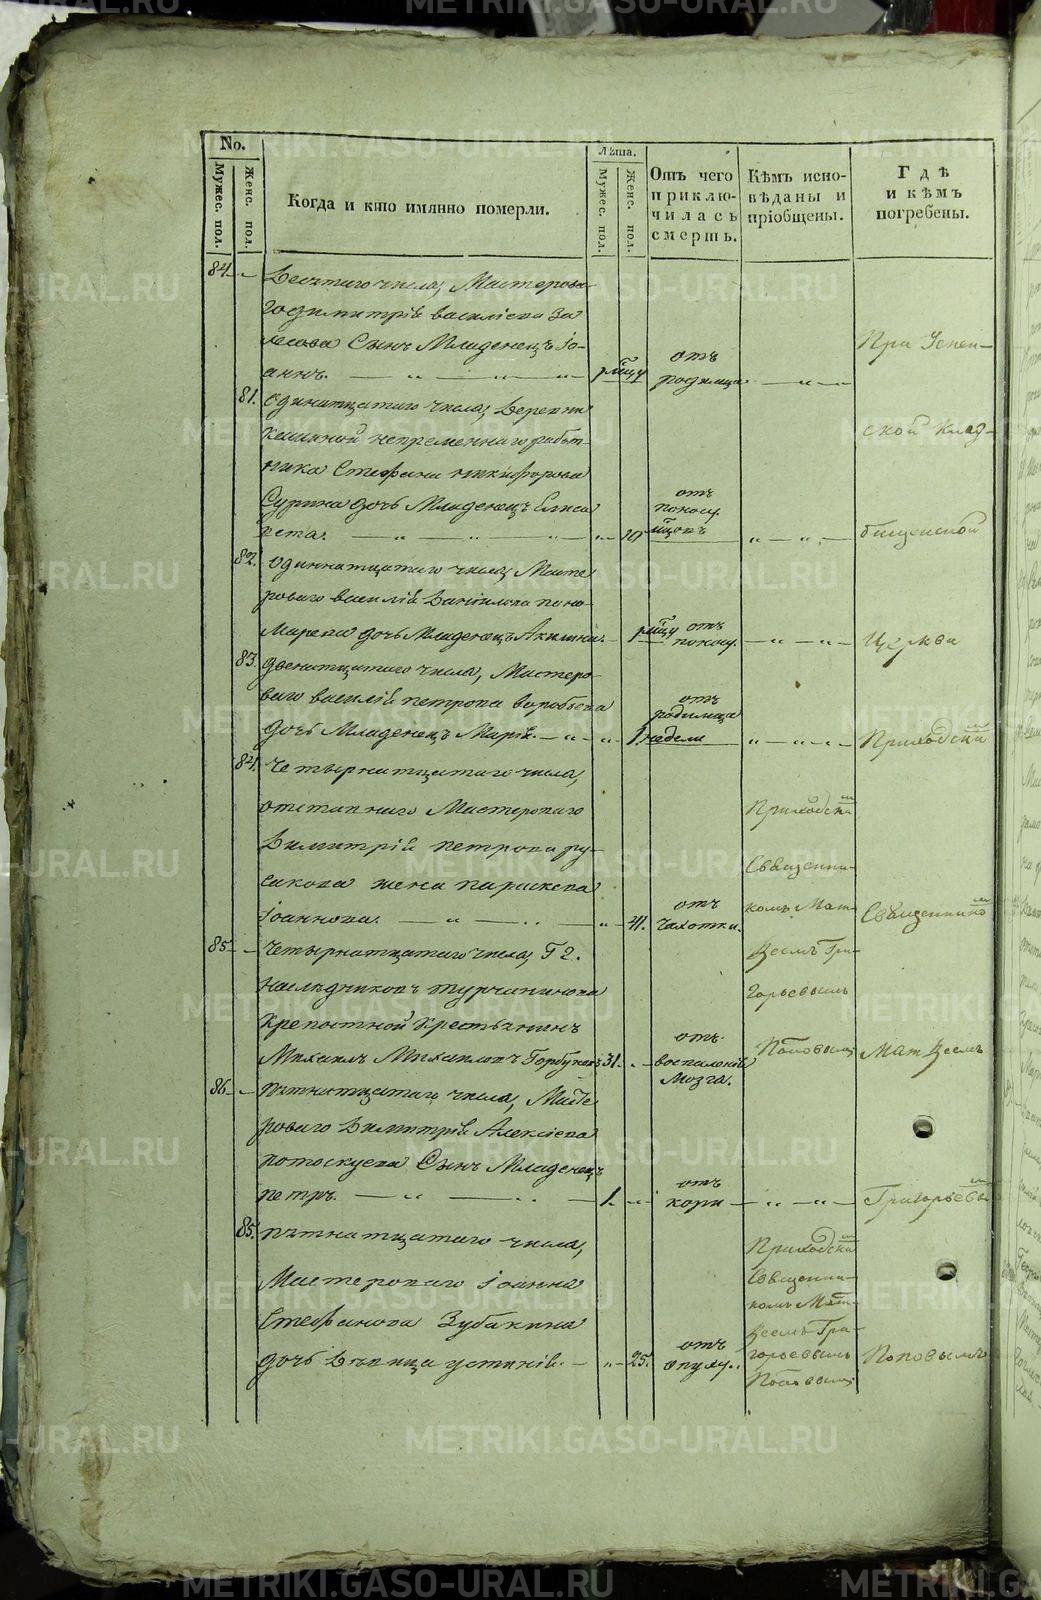 No.
Мужес. пол.
Женс. пол.
Когда и кто имянно померли.
Лѣта.
Мужес. пол.
Женс. пол.
Отъ чего приключилась смерть.
Кѣмъ исповѣданы и пріобщены.
Гдѣ и кѣмъ погребены.
84.
Десятаго числа, Мастерова
го димитрія василіева За
лесова Сынъ Младенецъ Іо-
аннъ.
отъ
родимца
При Успен-
81.
одинатцатаго числа, Верхъ
непременнаго работ-
ника Стефана никифорова
Сурина дочь Младенецъ Елиса
вета.
10
отъ
поносу
ской клад-
бищенской
82.
одиннатцатаго числа, Масте
роваго василія Даніилова поно
марева дочь Младенецъ Акилина.
отъ
поносу.
Церкви
83.
двенатцатаго числа, Мастеро-
ваго василія петрова воробьева
дочь Младенецъ Марія.
1 недели
отъ
родимца
Приходскимъ
84.
Четырнатцатаго числа,
отставнаго Мастероваго
Димитрія петрова ру-
сакова жена параскева
Іоаннова.
41.
отъ
чахотки.
Приходскимъ
Священни-
комъ Мат-
веемъ Гри-
горьевымъ
Поповымъ
Священникомъ
85
Четырнатцатаго числа, Г2.
наследниковъ турчанинова
крепостной крестьянинъ
Михаилъ Михаиловъ Горбуновъ
31.
отъ
воспаленія
мозга.
Матвеемъ
86
пятнатцатаго числа, Масте
роваго Димитрія Алексіева
потоскуева Сынъ Младенецъ
петръ.
1.
отъ
кори
Григорьевымъ
85.
пятнатцатаго числа,
Мастероваго Іоанна
Стефанова Зубакина
дочь Девица устинія.
25.
отъ
опуху.
Приходскимъ
Священни-
комъ Мат-
веемъ Гри-
горьевымъ
Поповымъ
Поповымъ
METRIKI.GASO-URAL.RU